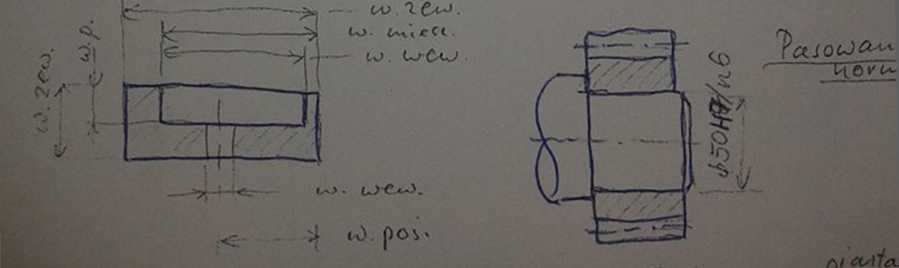 w. zew.
w. miesz.
w. wew.
w. p.
w. zew.
w. wew.
w. pos.
ϕ50H7/n6
Pasowan
norm
piasta